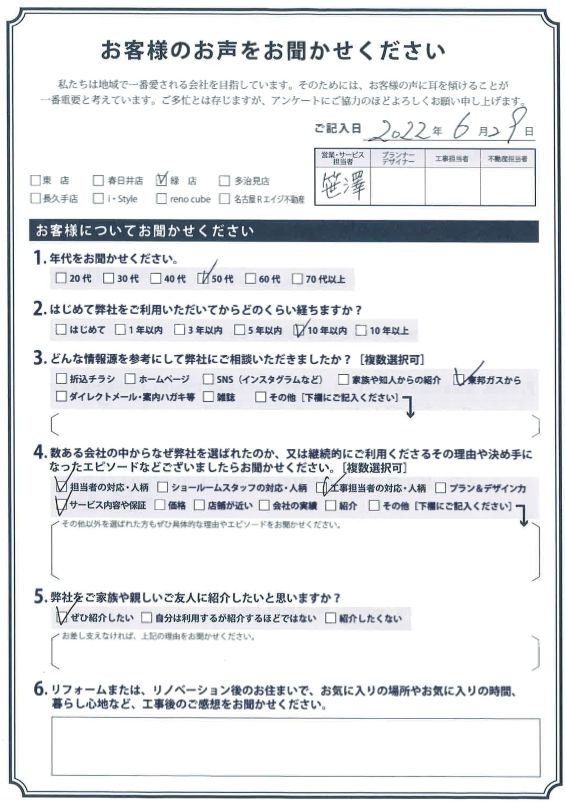 お客様のお声をお聞かせください
私たちは地域で一番愛される会社を目指しています。そのためには、お客様の声に耳を傾けることが
一番重要と考えています。ご多忙とは存じますが、アンケートにご協力のほどよろしくお願い申し上げます。
ご記入日 2022年 6月29日
営業・サービス担当者 プランナーデザイナー 工事担当者 不動産担当者
笹澤
□東 店 □春日井店 ☑緑 店 □多治見店
□長久手店 □i・Style □reno cube □名古屋Rエイジ不動産
お客様についてお聞かせください
1. 年代をお聞かせください。
□20代 □30代 □40代 ☑50代 □60代 □70代以上
2. はじめて弊社をご利用いただいてからどのくらい経ちますか？
□はじめて □1年以内 □3年以内 □5年以内 ☑10年以内 □10年以上
3. どんな情報源を参考にして弊社にご相談いただきましたか？［複数選択可］
□折込チラシ □ホームページ □SNS（インスタグラムなど） □家族や知人からの紹介 ☑東邦ガスから
□ダイレクトメール・案内ハガキ等 □雑誌 □その他［下欄にご記入ください］
4. 数ある会社の中からなぜ弊社を選ばれたのか、又は継続的にご利用くださるその理由や決め手に
なったエピソードなどございましたらお聞かせください。［複数選択可］
☑担当者の対応・人柄 □ショールームスタッフの対応・人柄 ☑工事担当者の対応・人柄 □プラン＆デザイン力
☑サービス内容や保証 □価格 □店舗が近い □会社の実績 □紹介 □その他［下欄にご記入ください］
その他以外を選ばれた方もぜひ具体的な理由やエピソードをお聞かせください。
5. 弊社をご家族や親しいご友人に紹介したいと思いますか？
☑ぜひ紹介したい □自分は利用するが紹介するほどではない □紹介したくない
お差し支えなければ、上記の理由をお聞かせください。
6. リフォームまたは、リノベーション後のお住まいで、お気に入りの場所やお気に入りの時間、
暮らし心地など、工事後のご感想をお聞かせください。